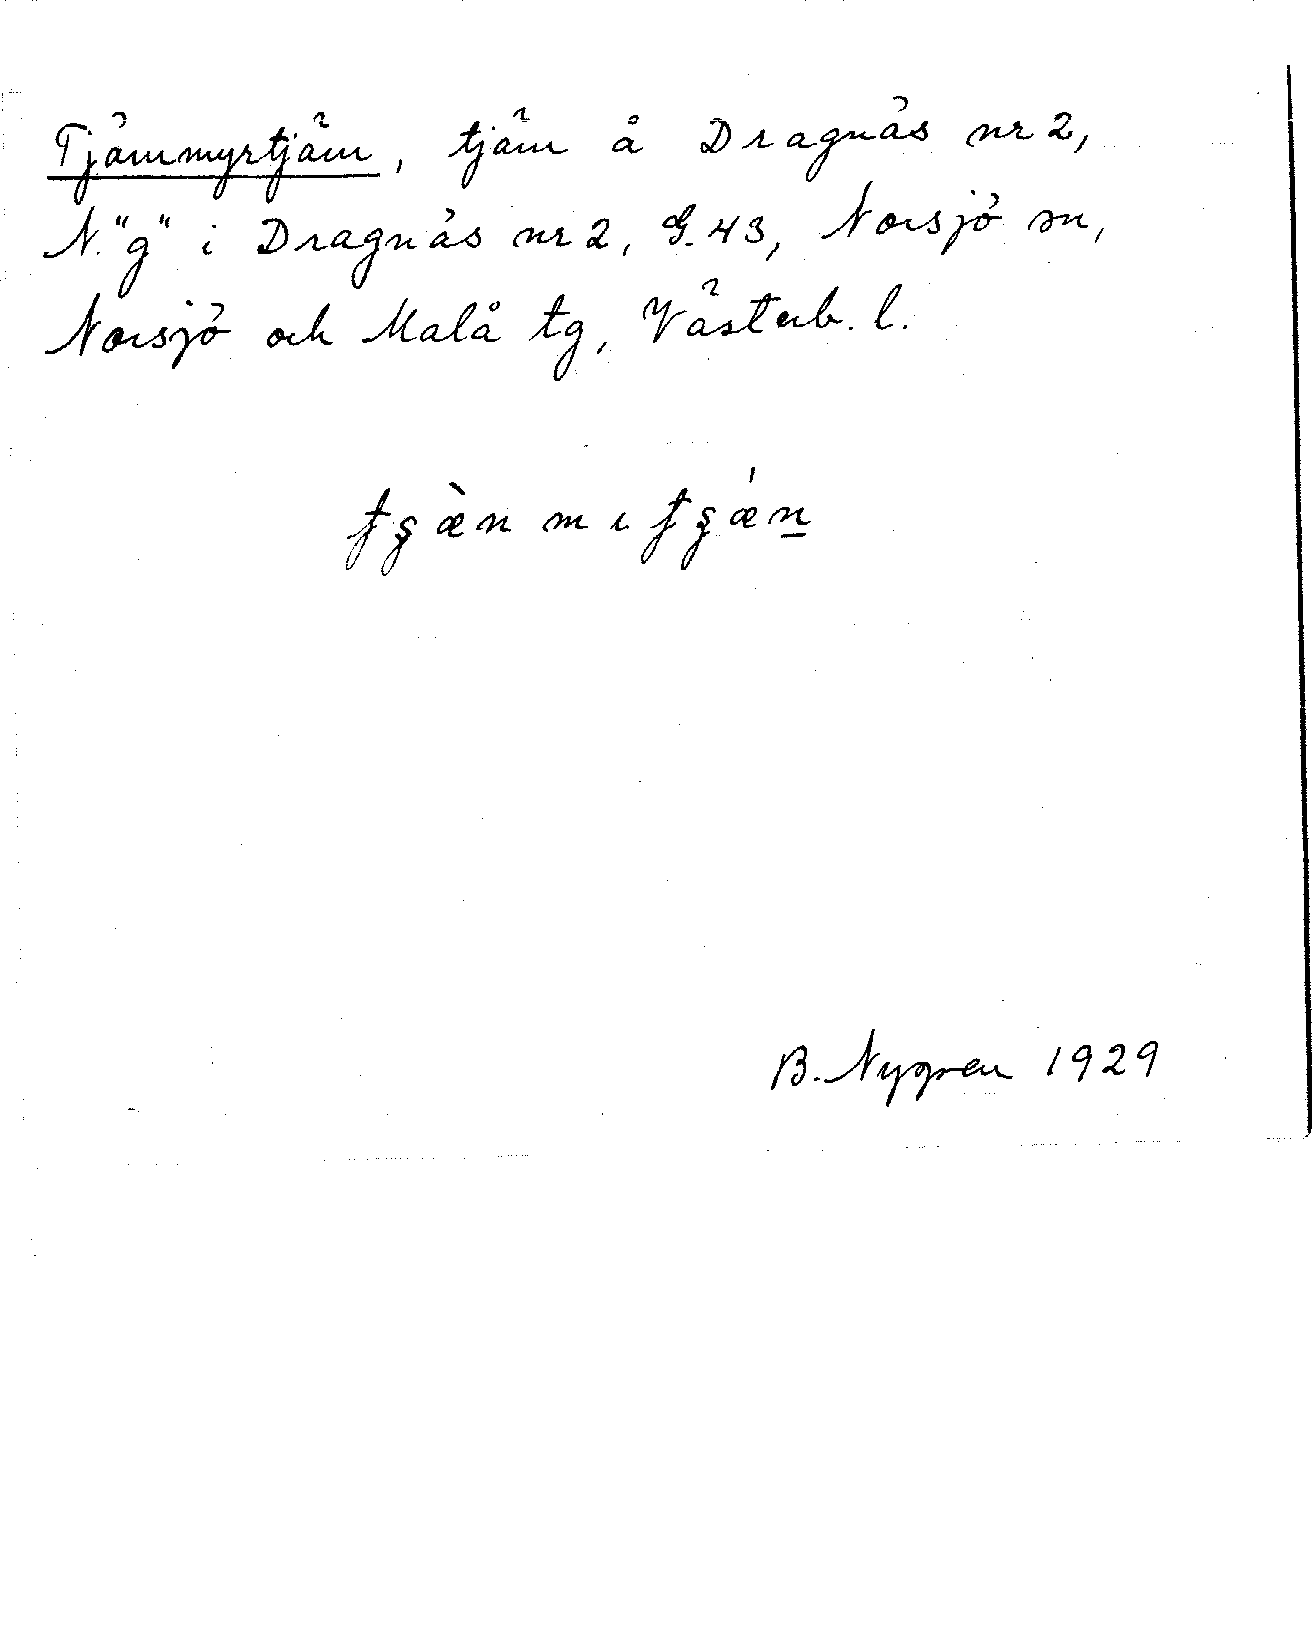 Tjämmyrtjäm, tjäm å Dragnäs nr 2,
N. "g" i Dragnäs nr 2, G. 43, Norsjö sn,
Norsjö och Malå tg, Västerb. l.
B. Nygren 1929